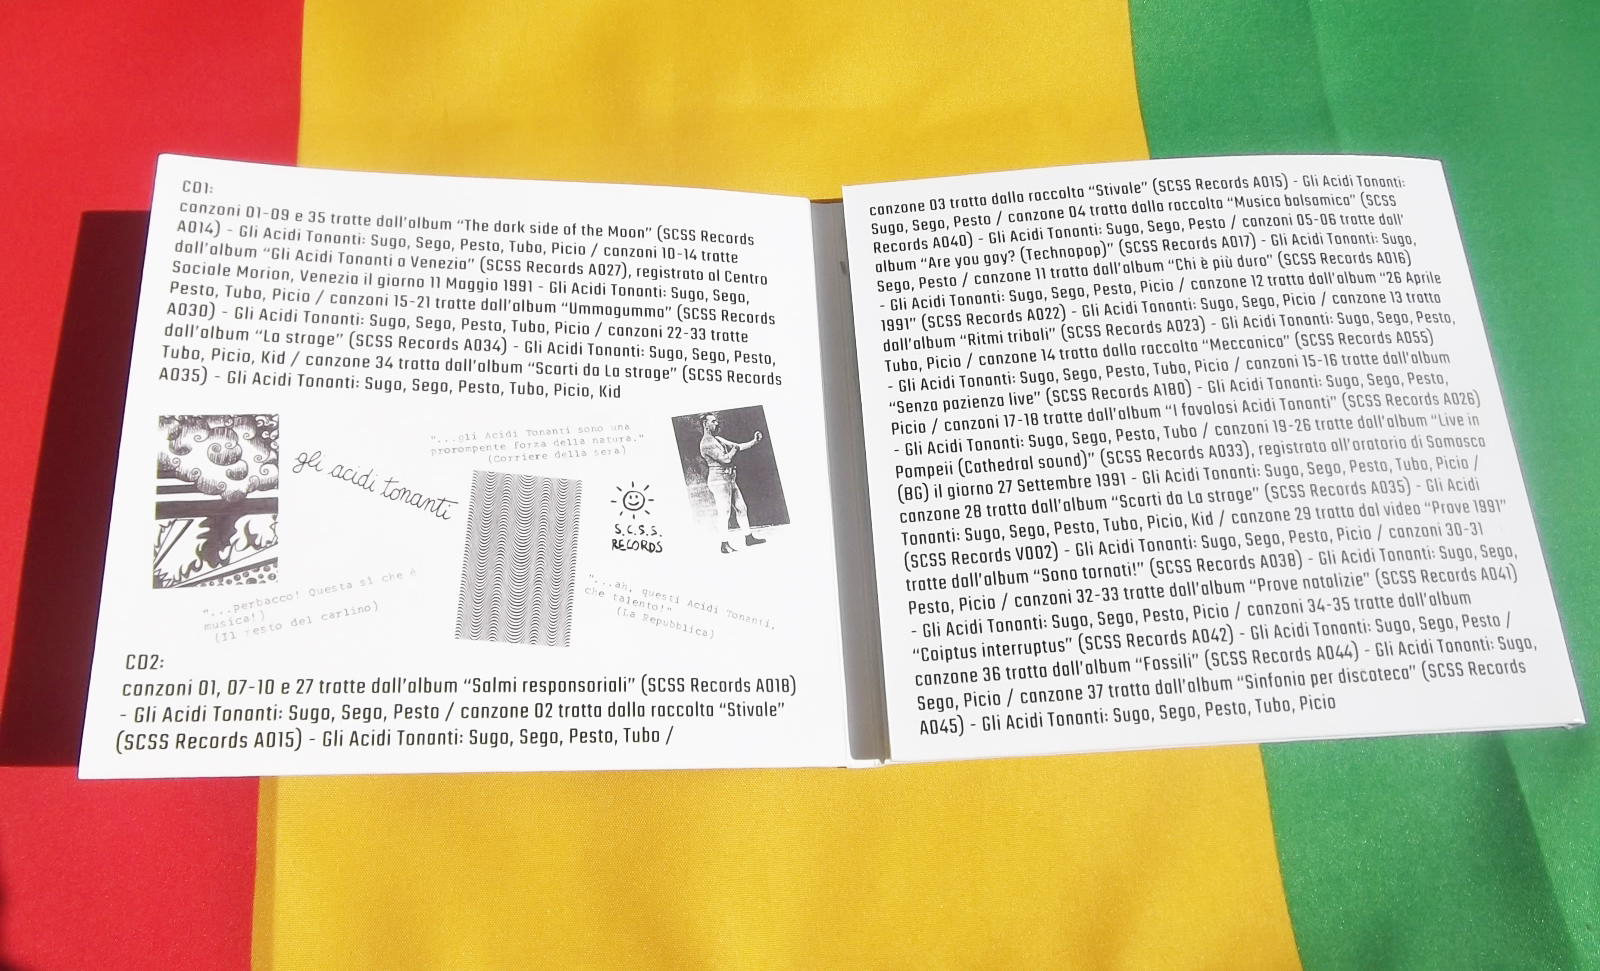 CD1:
canzoni 01-09 e 35 tratte dall'album “The dark side of the Moon” (SCSS Records
A014) - Gli Acidi Tonanti: Sugo, Sego, Pesto, Tubo, Picio / canzoni 10-14 tratte
dall'album “Gli Acidi Tonanti a Venezia” (SCSS Records A027), registrato al Centro
Sociale Morion, Venezia il giorno 11 Maggio 1991 - Gli Acidi Tonanti: Sugo, Sego,
Pesto, Tubo, Picio / canzoni 15-21 tratte dall'album “Ummagumma” (SCSS Records
A030) - Gli Acidi Tonanti: Sugo, Sego, Pesto, Tubo, Picio / canzoni 22-33 tratte
dall'album “La strage” (SCSS Records A034) - Gli Acidi Tonanti: Sugo, Sego, Pesto,
Tubo, Picio, Kid / canzone 34 tratta dall'album “Scarti da La strage” (SCSS Records
A035) - Gli Acidi Tonanti: Sugo, Sego, Pesto, Tubo, Picio, Kid
gli acidi tonanti
"...gli Acidi Tonanti sono una
prorompente forza della natura."
(Corriere della sera)
S.C.S.S.
RECORDS
"...perbacco! Questa sì che è
musica!)
(Il resto del carlino)
"...ah, questi Acidi Tonanti,
che talento!"
(La Repubblica)
CD2:
canzoni 01, 07-10 e 27 tratte dall'album “Salmi responsoriali” (SCSS Records A018)
- Gli Acidi Tonanti: Sugo, Sego, Pesto / canzone 02 tratta dalla raccolta “Stivale”
(SCSS Records A015) - Gli Acidi Tonanti: Sugo, Sego, Pesto, Tubo /
canzone 03 tratta dalla raccolta “Stivale” (SCSS Records A015) - Gli Acidi Tonanti:
Sugo, Sego, Pesto / canzone 04 tratta dalla raccolta “Musica balsamica” (SCSS
Records A040) - Gli Acidi Tonanti: Sugo, Sego, Pesto / canzoni 05-06 tratte dall'
album “Are you gay? (Technopop)” (SCSS Records A017) - Gli Acidi Tonanti: Sugo,
Sego, Pesto / canzone 11 tratta dall'album “Chi è più duro” (SCSS Records A016)
- Gli Acidi Tonanti: Sugo, Sego, Pesto, Picio / canzone 12 tratta dall'album “26 Aprile
1991” (SCSS Records A022) - Gli Acidi Tonanti: Sugo, Sego, Picio / canzone 13 tratta
dall'album “Ritmi tribali” (SCSS Records A023) - Gli Acidi Tonanti: Sugo, Sego, Pesto,
Tubo, Picio / canzone 14 tratta dalla raccolta “Meccanica” (SCSS Records A055)
- Gli Acidi Tonanti: Sugo, Sego, Pesto, Tubo, Picio / canzoni 15-16 tratte dall'album
“Senza pazienza live” (SCSS Records A180) - Gli Acidi Tonanti: Sugo, Sego, Pesto,
Picio / canzoni 17-18 tratte dall'album “I favolosi Acidi Tonanti” (SCSS Records A026)
- Gli Acidi Tonanti: Sugo, Sego, Pesto, Tubo / canzoni 19-26 tratte dall'album “Live in
Pompeii (Cathedral sound)” (SCSS Records A033), registrato all'oratorio di Somasca
(BG) il giorno 27 Settembre 1991 - Gli Acidi Tonanti: Sugo, Sego, Pesto, Tubo, Picio /
canzone 28 tratta dall'album “Scarti da La strage” (SCSS Records A035) - Gli Acidi
Tonanti: Sugo, Sego, Pesto, Tubo, Picio, Kid / canzone 29 tratta dal video “Prove 1991”
(SCSS Records V002) - Gli Acidi Tonanti: Sugo, Sego, Pesto, Picio / canzoni 30-31
tratte dall'album “Sono tornati!” (SCSS Records A038) - Gli Acidi Tonanti: Sugo, Sego,
Pesto, Picio / canzoni 32-33 tratte dall'album “Prove natalizie” (SCSS Records A041)
- Gli Acidi Tonanti: Sugo, Sego, Pesto, Picio / canzoni 34-35 tratte dall'album
“Coiptus interruptus” (SCSS Records A042) - Gli Acidi Tonanti: Sugo, Sego, Pesto /
canzone 36 tratta dall'album “Fossili” (SCSS Records A044) - Gli Acidi Tonanti: Sugo,
Sego, Picio / canzone 37 tratta dall'album “Sinfonia per discoteca” (SCSS Records
A045) - Gli Acidi Tonanti: Sugo, Sego, Pesto, Tubo, Picio